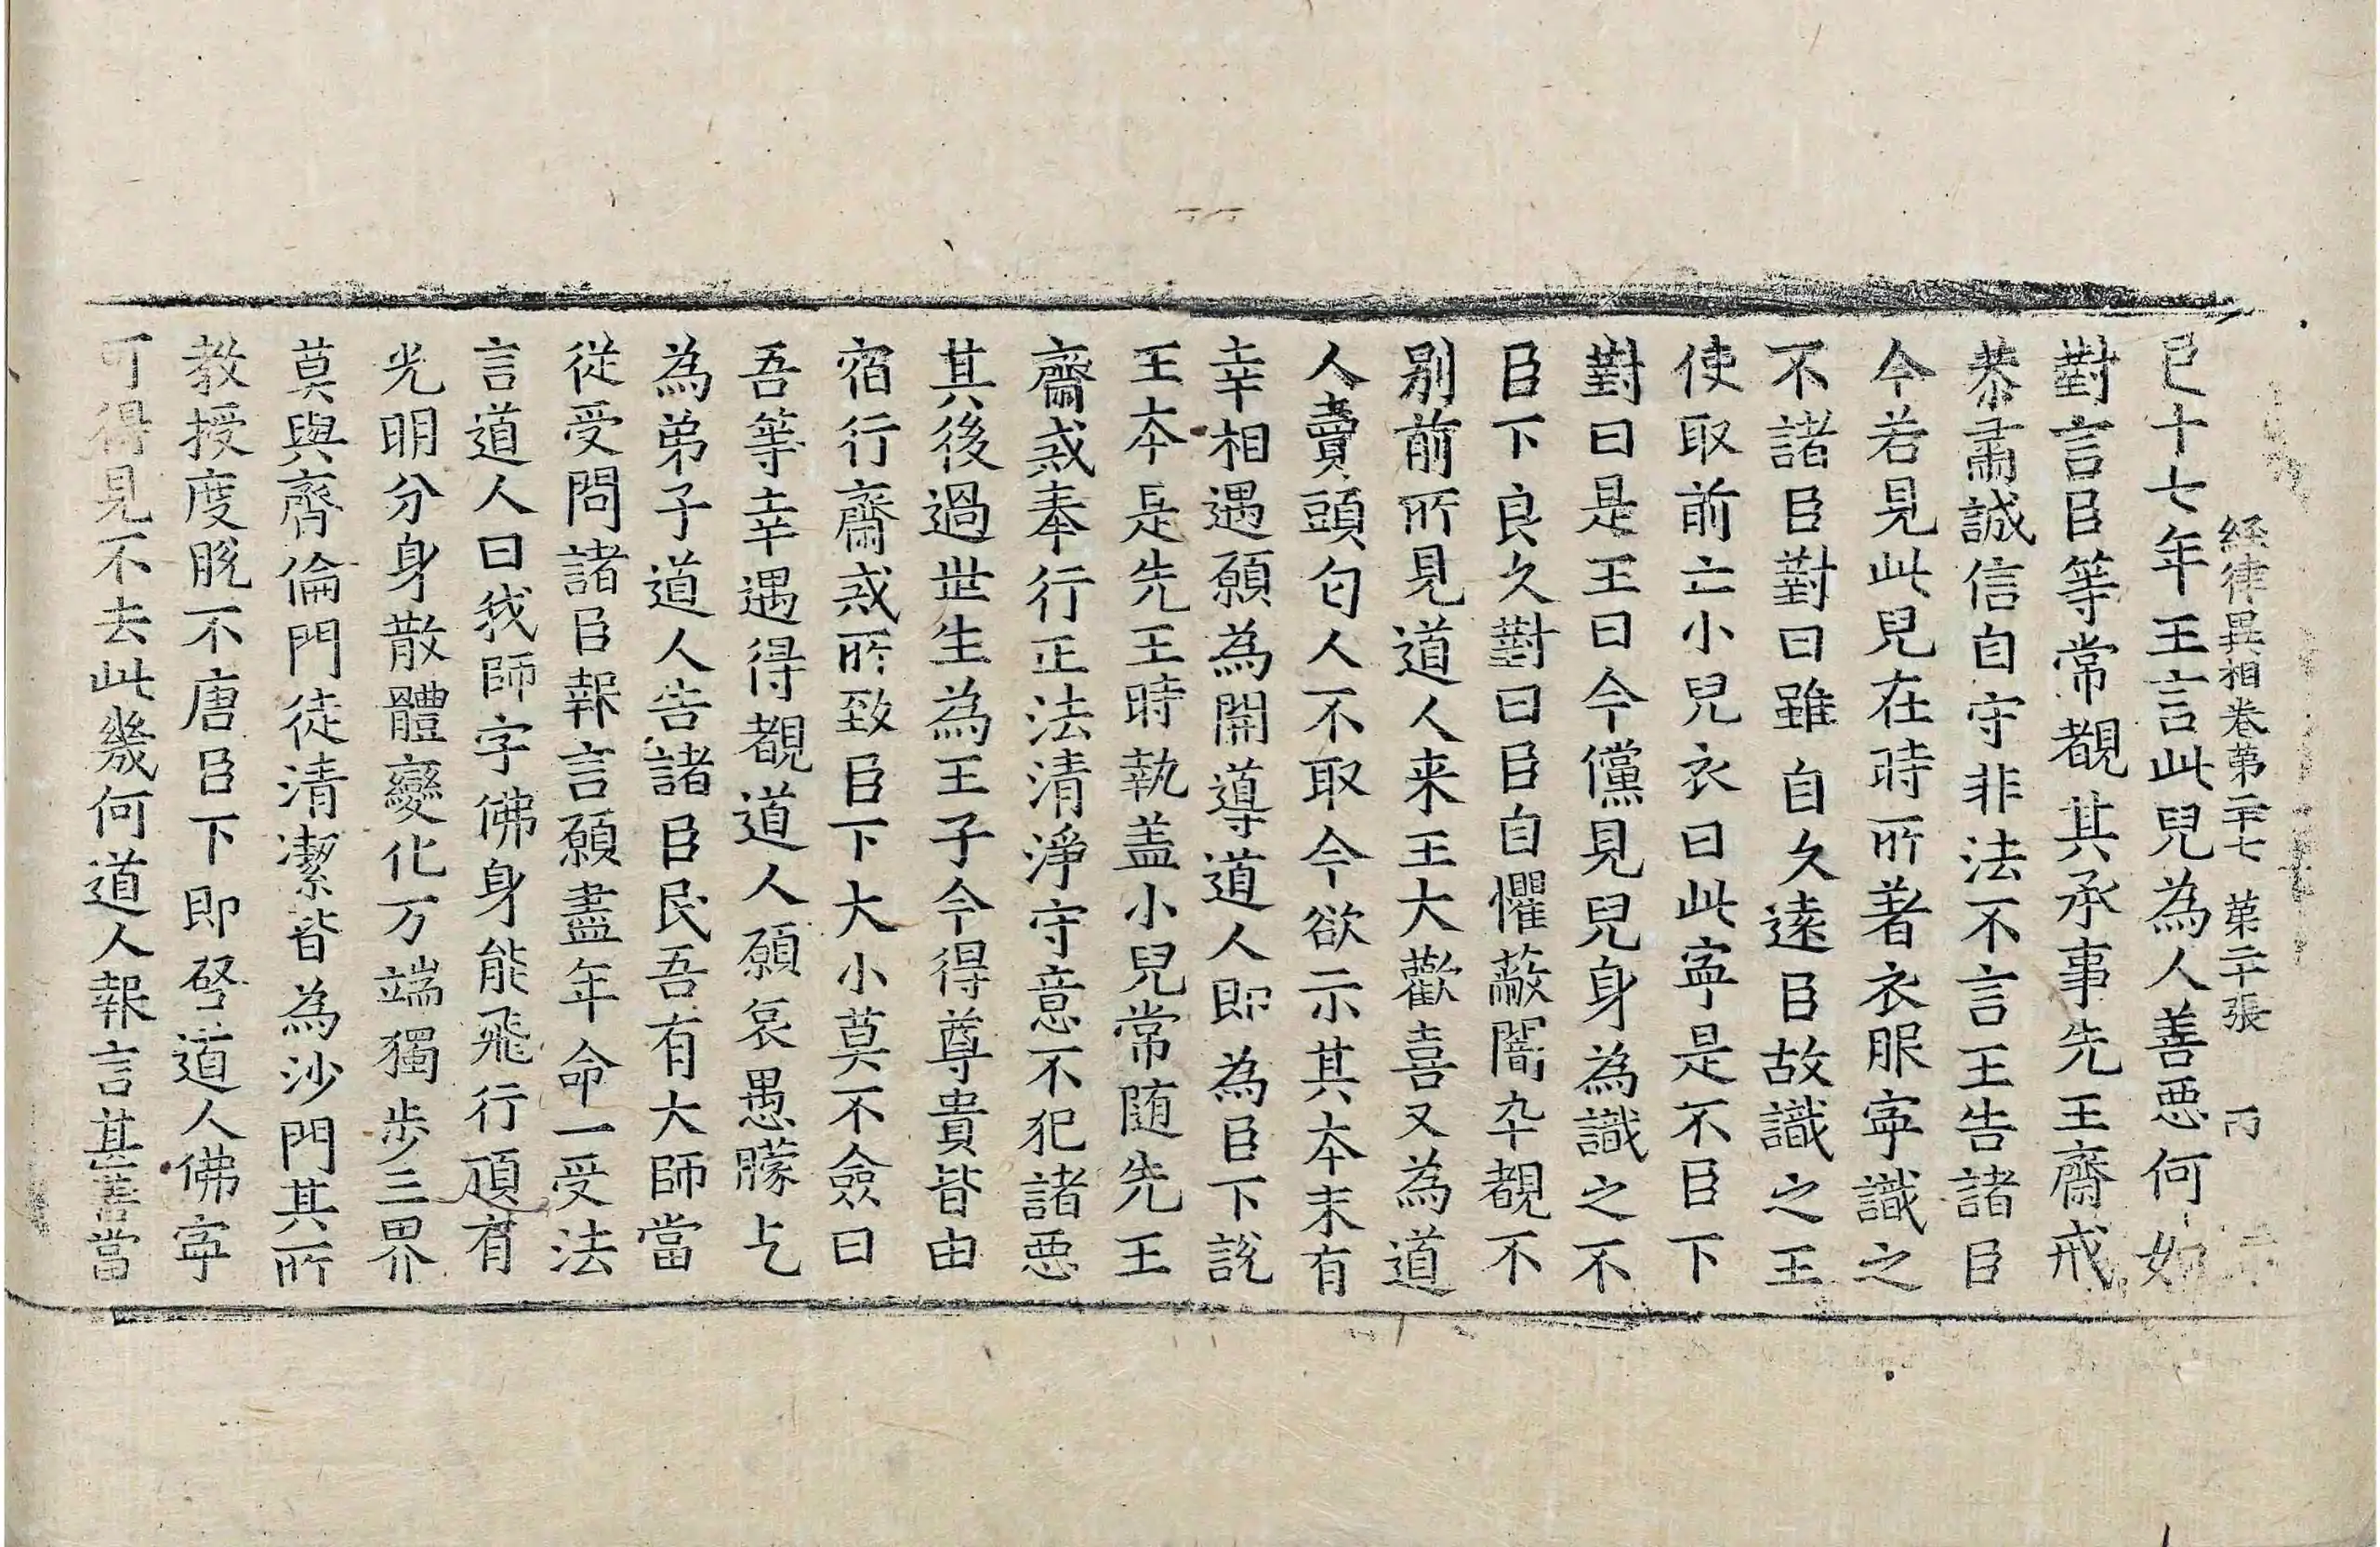 経律異相卷第二十七 第二十張 丙
已十七年王言此兒為人善惡何如
對言臣等常覩其承事先王齋戒
恭肅誠信自守非法不言王告諸臣
今若見此兒在時所著衣服寧識之
不諸臣對曰雖自久遠臣故識之王
使取前亡小兒衣曰此寧是不臣下
對曰是王曰今儻見兒身為識之不
臣下良久對曰臣自懼蔽闇卒覩不
別前所見道人来王大歡喜又為道
人賣頭匃人不取今欲示其本末有
幸相遇願為開導道人即為臣下說
王本是先王時執盖小兒常随先王
齋戒奉行正法清淨守意不犯諸惡
其後過世生為王子今得尊貴皆由
宿行齋戒所致臣下大小莫不僉曰
吾等幸遇得覩道人願哀愚朦乞
為弟子道人告諸臣民吾有大師當
從受問諸臣報言願盡年命一受法
言道人曰我師字佛身能飛行頂有
光明分身散體變化万端獨步三界
莫與齊倫門徒清潔皆為沙門其所
教授度脫不唐臣下即啓道人佛寧
可得見不去此幾何道人報言甚善當